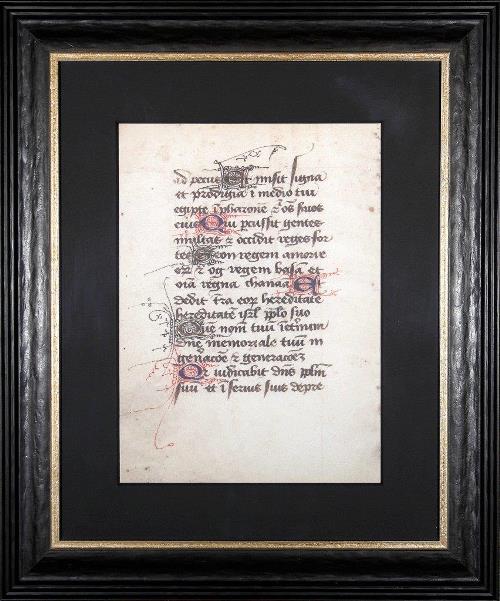 ad pecus Et misit signa
et prodigia i medio tui
egipte i pharaone ⁊ os suos
eius Qui pcussit gentes
multas ⁊ occidit reges for
tes Seon regem amorre
oꝝ ⁊ og regem basā et
oīa regna chanaā Et
dedit tra eoꝝ hereditate
hereditatē isrl pplo suo
Due nom tuū ieternum
Dne memoriale tuū in
genacōe ⁊ generacōeꝫ
Qr iudicabit dns pplm
suū et i servis suis depre